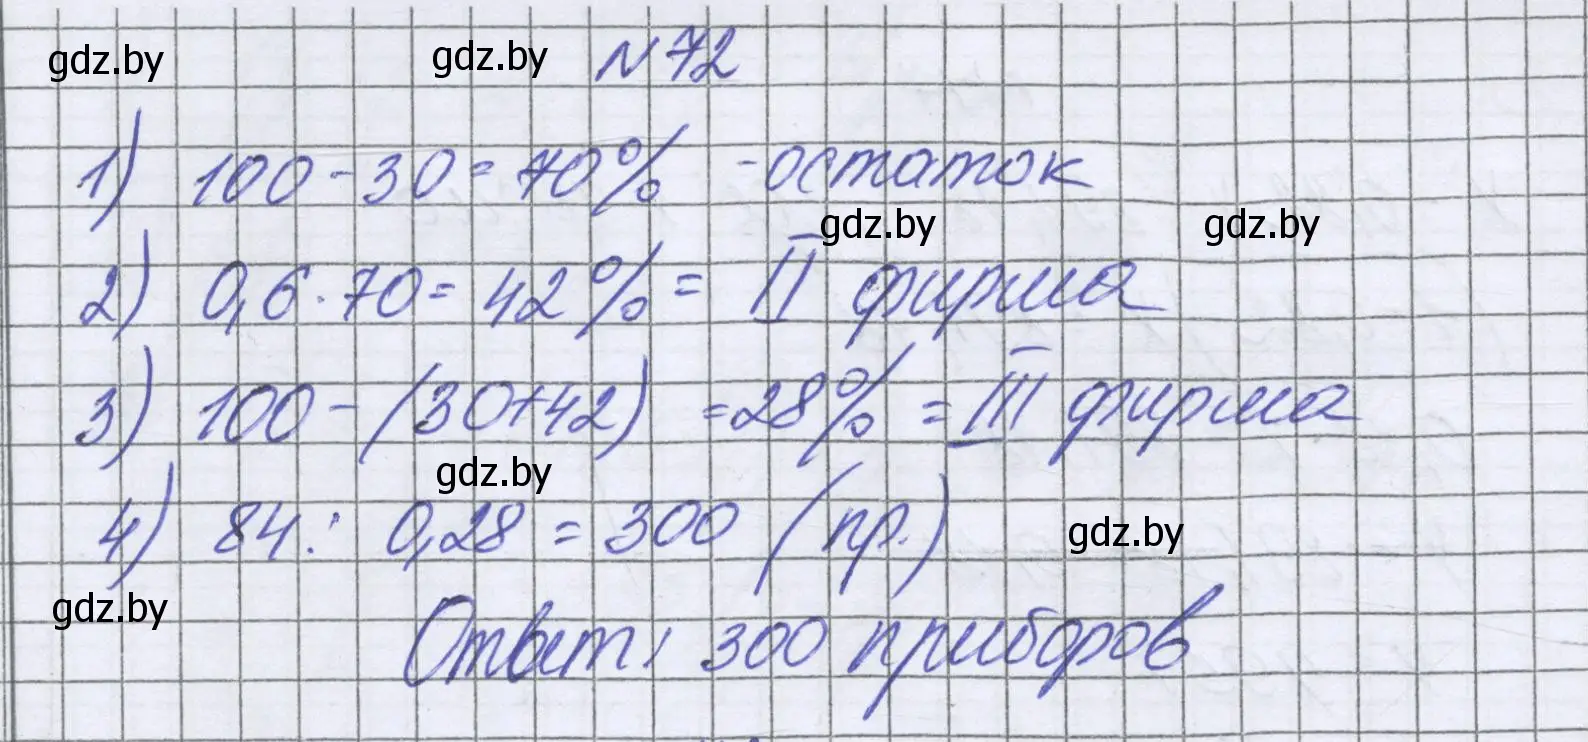 gdz.by gdz.by №72
1) 100-30=70% -остаток
gdz.by gdz.by
2) 0,6·70=42%= II фирма
3) 100-(30+42)=28%=III фирма
gdz.by
4) 84: 0,28=300 (пр.) gdz.by
gdz.by
Ответ: 300 приборов